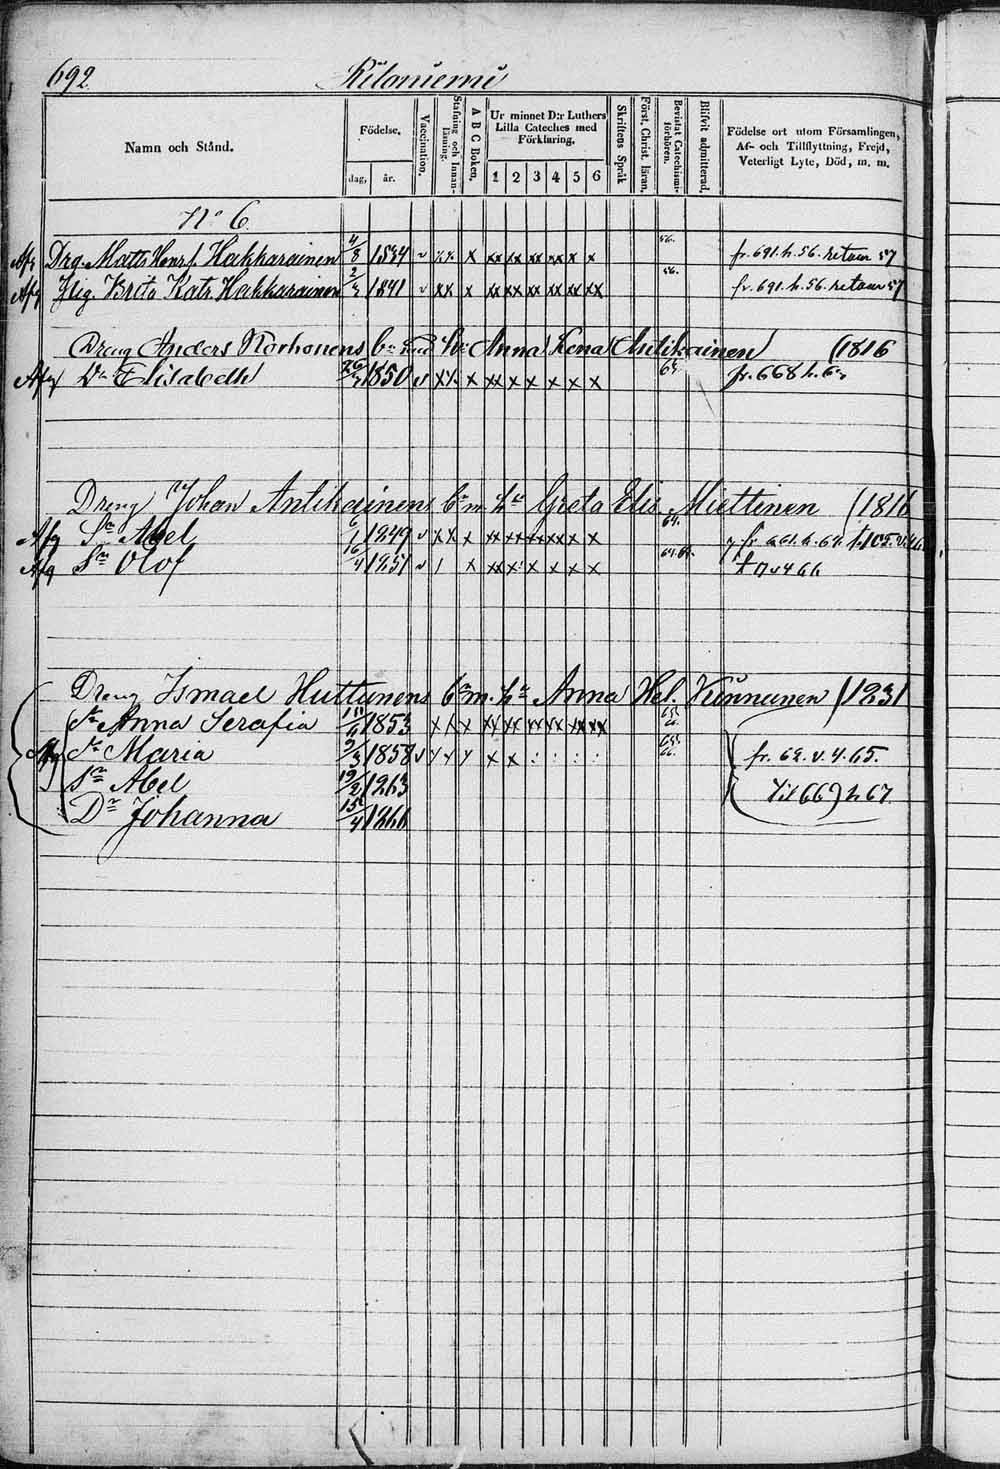 692. Kiloniemi
Namn och Stånd.
Födelse.
dag, år.
Vaccination.
Stafning och Innanläsning.
A B C Boken.
Ur minnet D:r Luthers Lilla Cateches med Förklaring.
1 2 3 4 5 6
Skriftens Språk
Först. Christ. läran.
Bevistat Catechismiförhören.
Blifvit admitterad.
Födelse ort utom Församlingen, Af- och Tillflyttning, Frejd, Veterligt Lyte, Död, m. m.
N:o 6
Drg. Matts Hakkarainen 4/8 1834 x xx xx xx xx x x 56. fr. 691. h. 56. retour 57
Brita Kats Hakkarainen 1841 xx x xx xx xx xx xx xx 56. fr. 691. h. 56. retour 57
Dreng Anders Korhonens Anna Lena Antikainen (1816
Elisabeth 1850 x xx xx x x x x fr. 668 h.
Dreng Johan Antikainens m. Greta Elis. Miettinen (1816
Afg Sn Abel 6/1 1849 x x x xx xx xx xx x x 64.
Afg Sn Olof 16/4 1851 x xx xx x x x x
Dreng Ismael Huttunens m. Anna Hel. Kinnunen (1831
Anna Serafia 1853 x x x xx xx xx xx xx xx 65.
Maria 1858 x x : : : : 65. fr. 62. v. 4. 65.
Sn Abel 19/2 1863
Dr Johanna 15/4 1866 Til 669 h 67